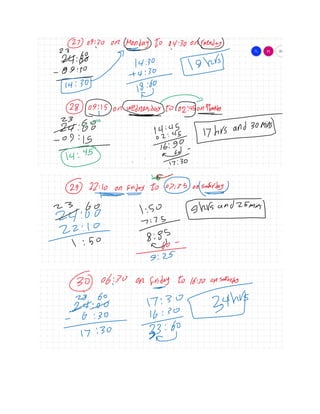 27 09:30 on Monday to 04:30 on Tuesday
23 60
24:00
- 09:30
14:30
14:30
+ 4:30
18:60
19 hrs
28 09:15 on wednesday to 02:45 on
23 60
24:00
- 09:15
14:45
14:45
02:45
16:90
60 -
17:30
17 hrs and 30
29 22:10 on Friday to 07:25 on Saturday
23 60
24:00
22:10
1:50
1:50
7:25
8:85
60 -
9:25
9 hrs and 25
30 06:30 on Friday to 16:30 on
23 60
24:00
- 6:30
17:30
17:30
16:30
33:60
34 hrs